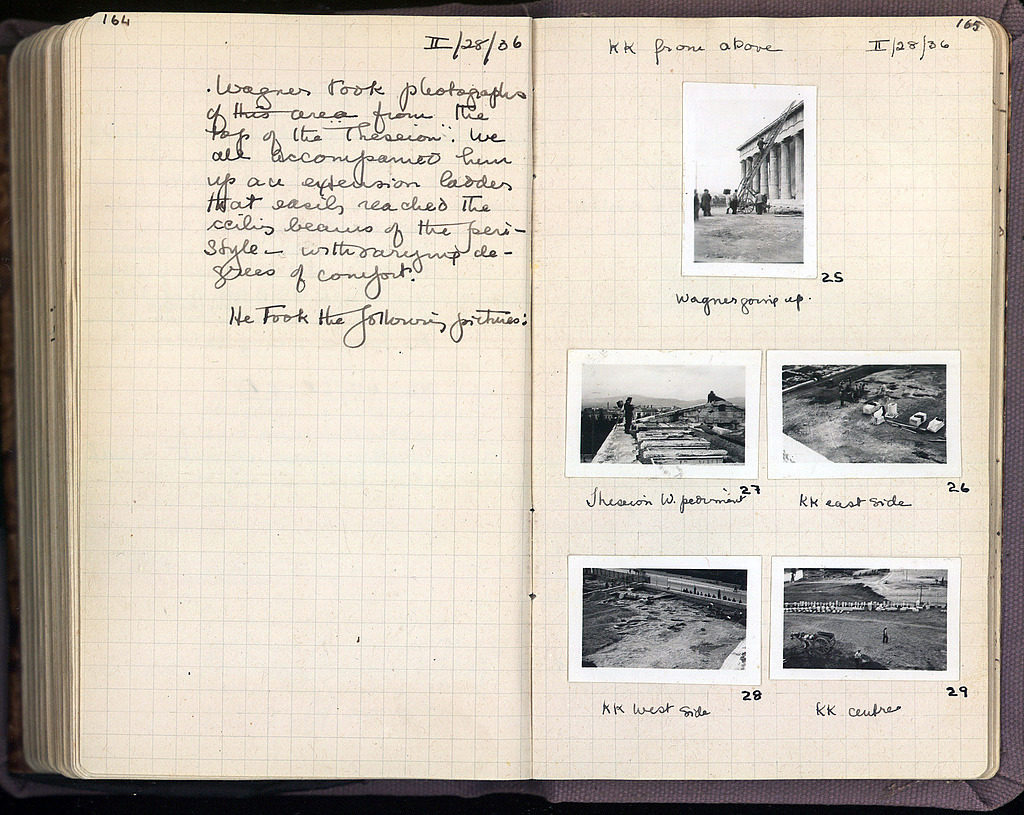 164
II/28/36
Wagner took photographs
of this area from the
top of the "Theseion". We
all accompanied him
up an extension ladder
that easily reached the
ceiling beams of the peri-
style - with varying de-
grees of comfort.
He took the following pictures:
165
KK from above II/28/36
25
Wagner going up.
27
Theseion W. pediment
26
KK east side
28
KK west side
29
KK centre